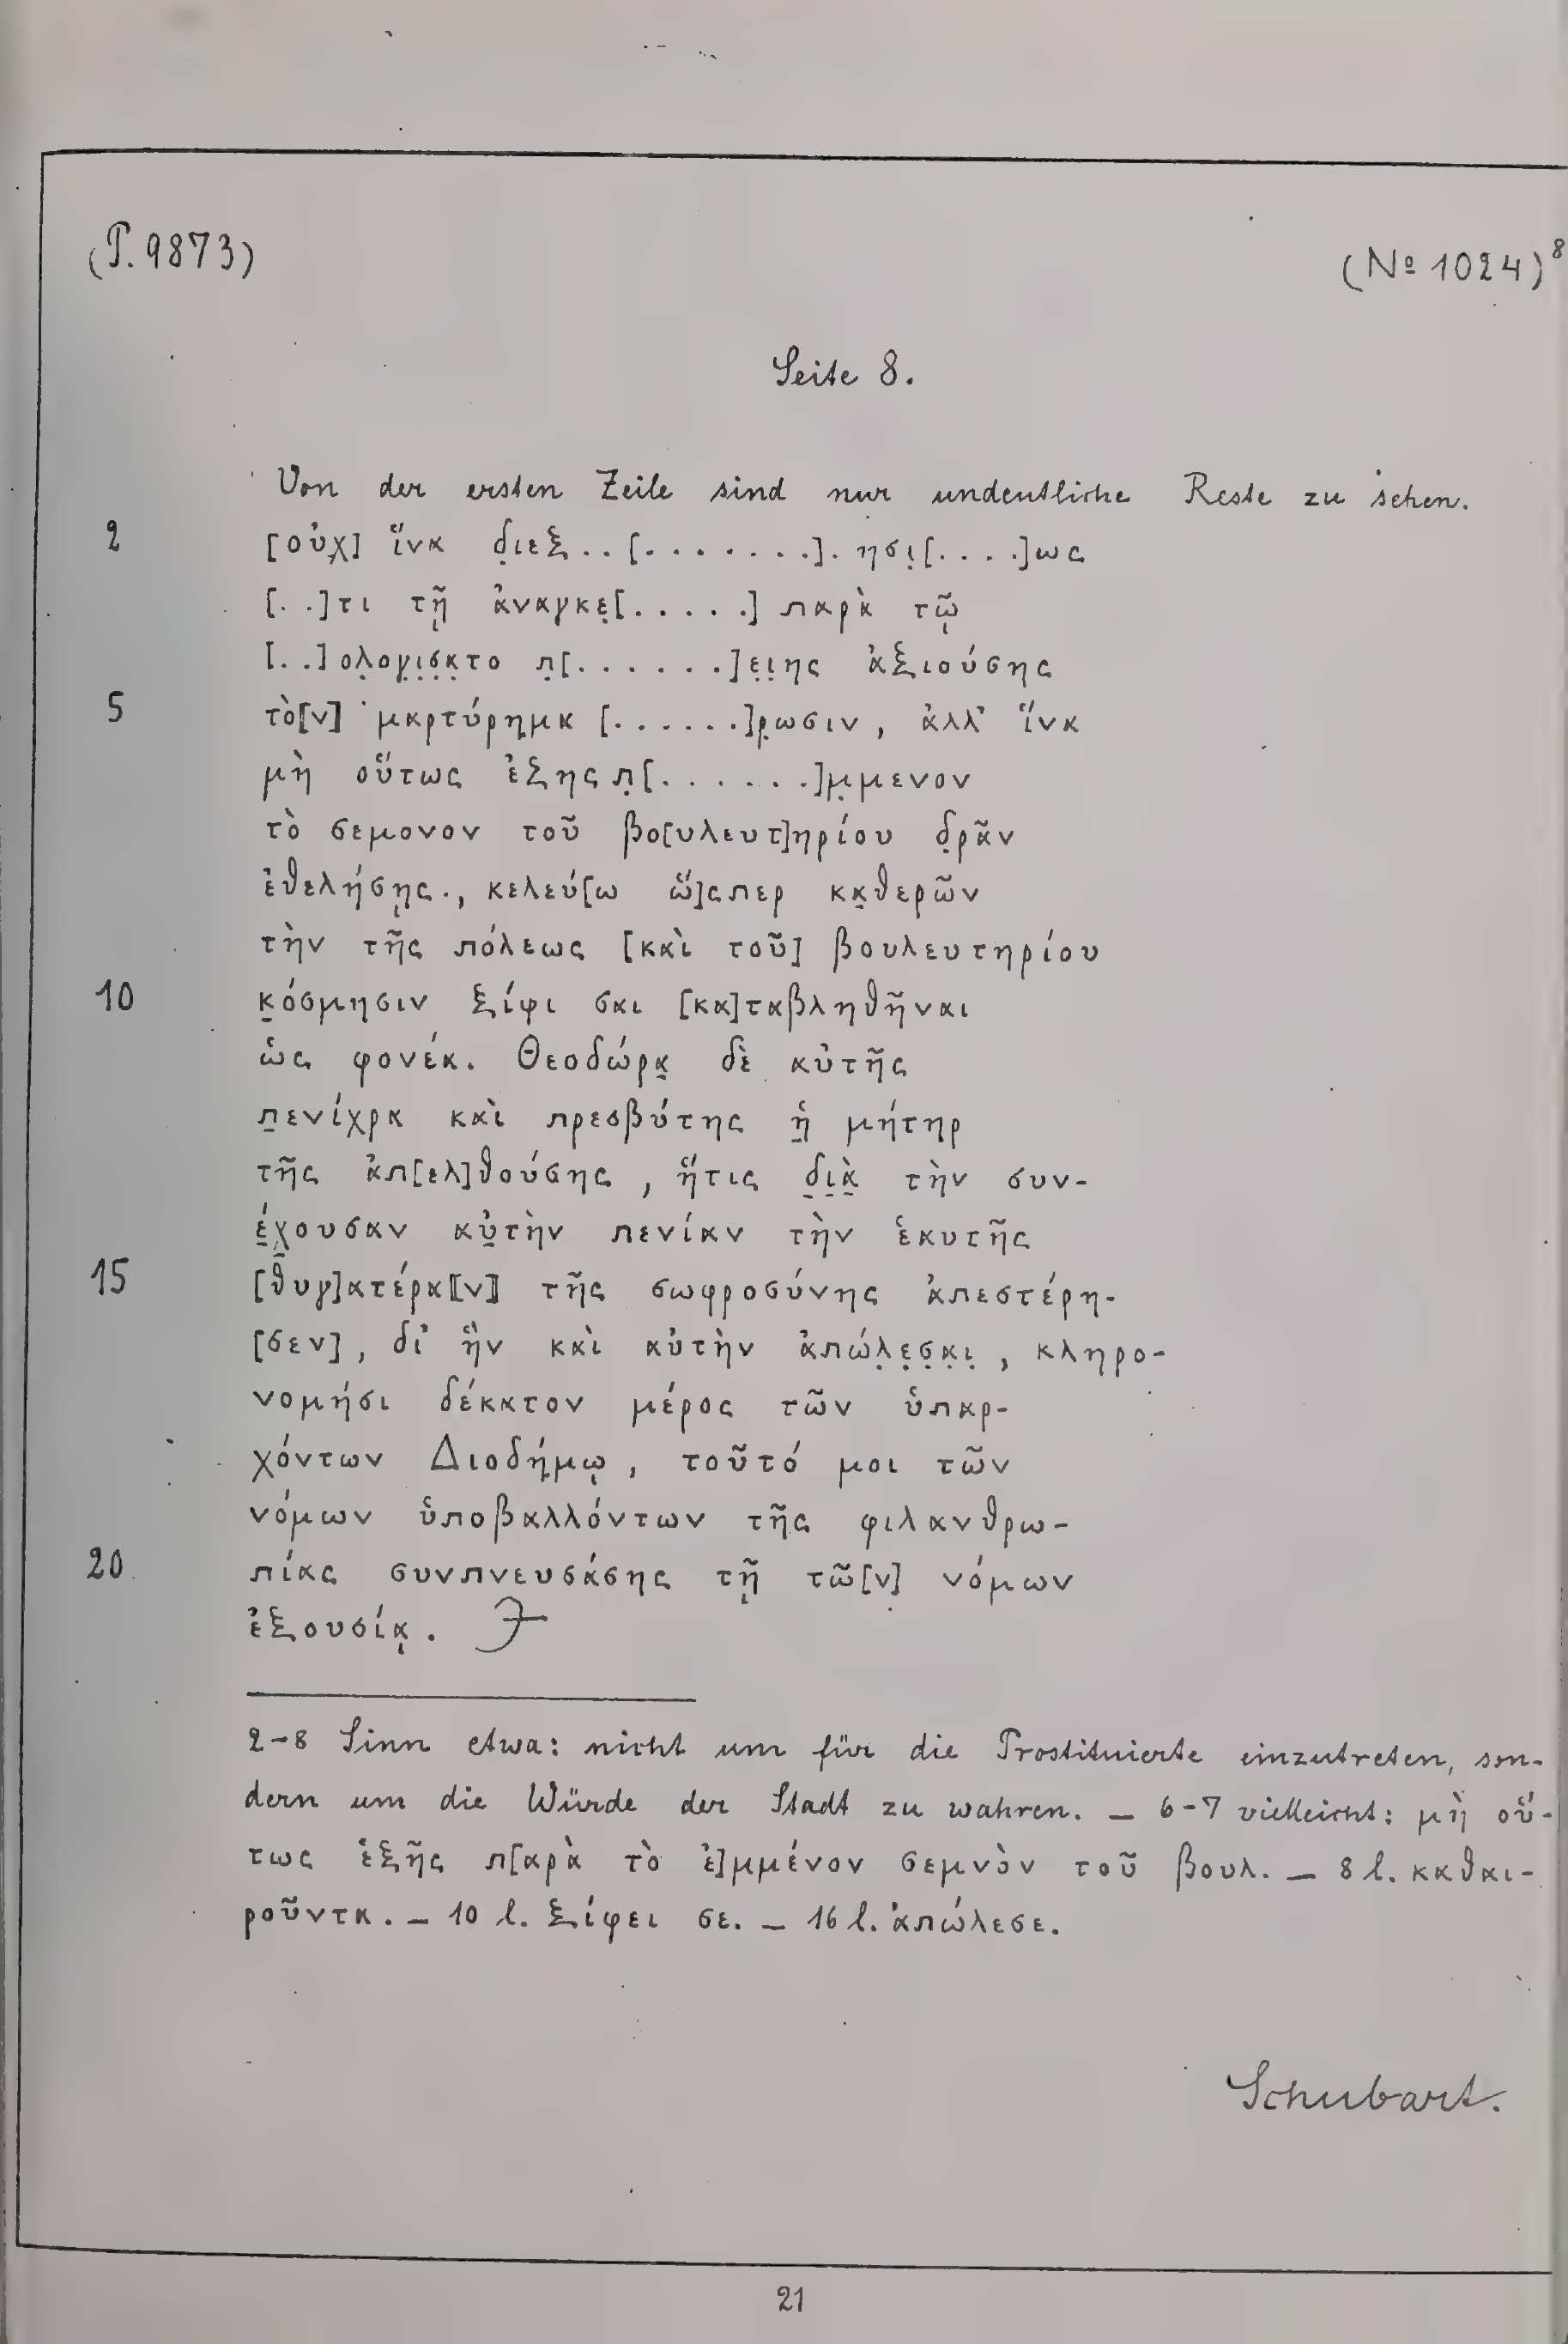 (P. 9873)
(No 1024)8
Seite 8.
Von der ersten Zeile sind nur undeutliche Reste zu sehen.
2 [οὐχ] ἵνα δ̣ιεξ..[........]. ησι̣[....]ως
[..]τι τῇ ἀναγκε̣[.....] παρὰ τῷ
[..]ολ̣ογ̣ι̣σ̣α̣το π̣[.......]ε̣ι̣ης ἀξιούσης
5 τὸ[ν] μαρτύρημα [......]ρ̣ωσιν, ἀλλ' ἵνα
μὴ οὕτως ἐξης π̣[.......]μ̣μενον
τὸ σεμονον τοῦ βο[υλευτ]ηρίου δ̣ρᾶν
ἐθελήσῃς., κελεύ[ω ὥ]ςπερ κα̣θερῶν
τὴν τῆς πόλεως [καὶ τοῦ] βουλευτηρίου
10 κ̣όσμησιν ξίφι σαι [κα]ταβληθῆναι
ὡς φονέα. Θεοδώρα̣ δὲ αὐτῆς
π̣ενίχρα καὶ πρεσβύτης ἡ̣ μήτηρ
τῆς ἀπ[ελ]θούσης, ἥτις δ̣ι̣ὰ̣ τὴν συν-
έ̣χουσαν αὐ̣τὴν πενίαν τὴν ἑαυτῆς
15 [θυγ]ατέρα[[ν]] τῆς σωφροσύνης ἀπεστέρη-
[σεν], δι' ἣν καὶ αὐτὴν ἀπώλ̣ε̣σ̣α̣ι̣, κληρο-
νομήσι δέκατον μέρος τῶν ὑπαρ-
χόντων Διοδήμῳ, τοῦτό μοι τῶν
νόμων ὑποβαλλόντων τῆς φιλανθρω-
20 πίας συνπνευσάσης τῇ τῶ[ν] νόμων
ἐξουσίᾳ.
2-8 Sinn etwa: nicht um für die Prostituierte einzutreten, son-
dern um die Würde der Stadt zu wahren. – 6-7 vielleicht: μὴ οὕ-
τως ἑξῆς π[αρὰ τὸ ἐ]μμένον σεμνὸν τοῦ βουλ. – 8 l. καθαι-
ροῦντα. – 10 l. ξίφει σε. – 16 l. ἀπώλεσε.
Schubart.
21